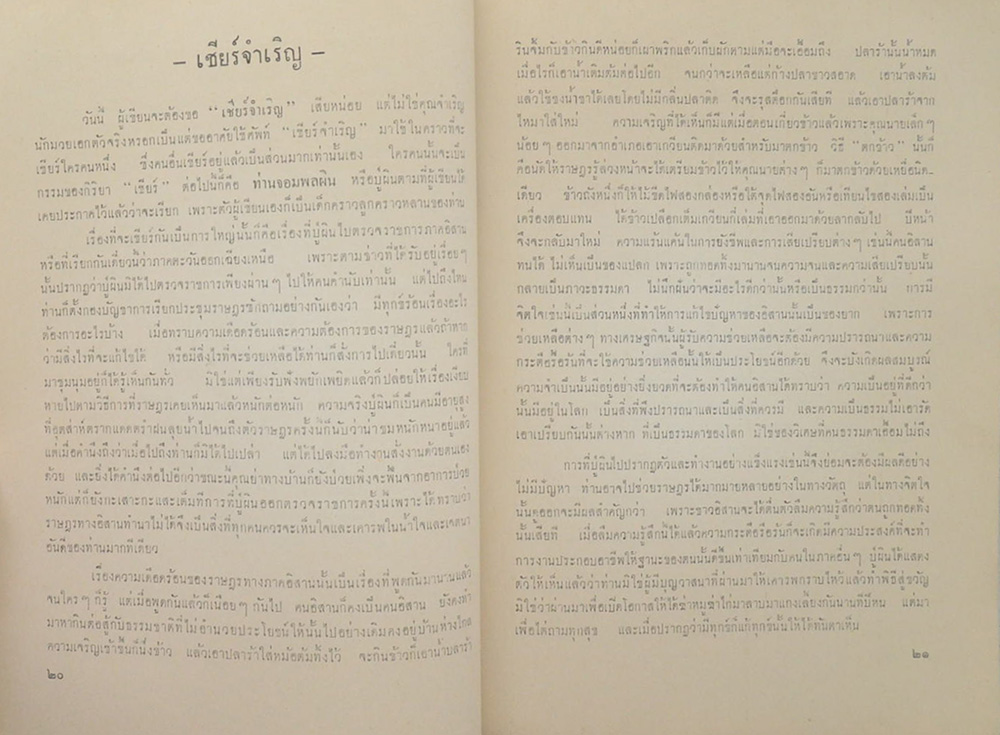 – เชียร์จำเริญ –
วันนี้ ผู้เขียนจะต้องขอ "เชียร์จำเริญ" เสียหน่อย แต่ไม่ใช่คุณจำเริญ
นักมวยเอกตัวจริงหรอกเป็นแต่ขออาศัยใช้ศัพท์ "เชียร์จำเริญ" มาใช้ในคราวที่จะ
เชียร์ใครคนหนึ่ง ซึ่งคนอื่นเชียร์อยู่แล้วเป็นส่วนมากเท่านั้นเอง ใครคนนั้นจะเป็น
กรรมของกิริยา "เชียร์" ต่อไปนี้ก็คือ ท่านจอมพลผิน หรือปู่ผินตามที่ผู้เขียนได้
เคยประกาศไว้แล้วว่าจะเรียก เพราะตัวผู้เขียนเองก็เป็นเด็กคราวลูกคราวหลานของท่าน
เรื่องที่จะเชียร์กันเป็นการใหญ่นั้นก็คือเรื่องที่ปู่ผินไปตรวจราชการภาคอีสาน
หรือที่เรียกกันเดี๋ยวนี้ว่าภาคตะวันออกเฉียงเหนือ เพราะตามข่าวที่ได้รับอยู่เรื่อยๆ
นั้นปรากฏว่าปู่ผินมิได้ไปตรวจราชการเพียงผ่านๆ ไปให้คนคำนับเท่านั้น แต่ไปถึงไหน
ท่านก็ตั้งกองบัญชาการเรียกประชุมราษฎรซักถามอย่างกันเองว่า มีทุกข์ร้อนเรื่องอะไร
ต้องการอะไรบ้าง เมื่อทราบความเดือดร้อนและความต้องการของราษฎรแล้วถ้าหาก
ว่ามีสิ่งไรที่จะแก้ไขได้ หรือมีสิ่งไรที่จะช่วยเหลือได้ท่านก็สั่งการไปเดี๋ยวนั้น ใครที่
มาชุมนุมอยู่ก็ได้รู้เห็นกันทั่ว มิใช่แต่เพียงรับฟังพยักเพยิดแล้วก็ปล่อยให้เรื่องเงียบ
หายไปตามวิธีการที่ราษฎรเคยเห็นมาแล้วหนักต่อหนัก ความจริงปู่ผินก็เป็นคนมีอายุสูง
ที่อุตส่าห์ตรากแดดตรำฝนลุยน้ำไปจนถึงตัวราษฎรครั้งนี้ก็นับว่าน่าชมหนักหนาอยู่แล้ว
แต่เมื่อคำนึงถึงว่าเมื่อไปถึงท่านก็มิได้ไปเปล่า แต่ได้ไปลงมือทำงานสั่งงานด้วยตนเอง
ด้วย และยิ่งได้คำนึงต่อไปอีกว่าขณะนี้คุณย่าทางบ้านก็ยังป่วยเพิ่งจะฟื้นจากอาการป่วย
หนักแต่ก็ยังกะเสาะกะแสะเต็มทีการที่ปู่ผินออกตรวจราชการครั้งนี้เพราะได้ทราบว่า
ราษฎรทางอีสานทำนาไม่ได้จึงเป็นสิ่งที่ทุกคนควรจะเห็นใจและเคารพในน้ำใจและเจตนา
อันดีของท่านมากทีเดียว
เรื่องความเดือดร้อนของราษฎรทางภาคอีสานนั้นเป็นเรื่องที่พูดกันมานานแล้ว
จนใครๆ ก็รู้ แต่เมื่อพูดกันแล้วก็เนือยๆ กันไป คนอีสานก็คงเป็นคนอีสาน ยังคงทำ
มาหากินต่อสู้กับธรรมชาติที่ไม่อำนวยประโยชน์ให้นั้นไปอย่างเดิมคงอยู่บ้านห่างไกล
ความเจริญเช้าขึ้นก็นึ่งข้าว แล้วเอาปลาร้าใส่หม้อต้มทิ้งไว้ จะกินข้าวก็เอาน้ำปลาร้า
๒๐
รินจิ้มกับข้าวกินดีหน่อยก็เผาพริกแล้วเก็บผักตามแต่มือจะเอื้อมถึง ปลาร้านั้นน้ำหมด
เมื่อไรก็เอาน้ำเติมต้มต่อไปอีก จนกว่าจะเหลือแต่ก้างปลาขาวสอาด เอาน้ำลงต้ม
แล้วใช้ชงน้ำชาได้เลยโดยไม่มีกลิ่นปลาติด จึงจะรุสต๊อกกันเสียที แล้วเอาปลาร้าจาก
ไหมาใส่ใหม่ ความเจริญที่ได้เห็นก็มีแต่เมื่อตอนเกี่ยวข้าวแล้วเพราะคุณนายเล็กๆ
น้อยๆ ออกมาจากอำเภอเอาเกวียนติดมาด้วยสำหรับมาตกข้าว วิธี "ตกข้าว" นั้นก็
คือนัดให้ราษฎรรู้ล่วงหน้าจะได้เตรียมข้าวไว้ให้คุณนายต่างๆ ก็มาตกข้าวด้วยเหยื่อนิด–
เดียว ข้าวถังหนึ่งก็ให้ไม้ขีดไฟสองกล่องหรือใต้จุดไฟสองอันหรือเทียนไขสองเล่มเป็น
เครื่องตอบแทน ได้ข้าวเปลือกเต็มเกวียนกี่เล่มที่เอาออกมาด้วยลากลับไป ปีหน้า
จึงจะกลับมาใหม่ ความแร้นแค้นในการยังชีพและการเสียเปรียบต่างๆ เช่นนี้คนอีสาน
ทนได้ ไม่เห็นเป็นของแปลก เพราะถูกทอดทิ้งมานานจนความจนและความเสียเปรียบนั้น
กลายเป็นภาวะธรรมดา ไม่นึกฝันว่าจะมีอะไรดีกว่านั้นหรือเป็นธรรมกว่านั้น การมี
จิตใจเช่นนี้เป็นส่วนหนึ่งที่ทำให้การแก้ไขปัญหาของอีสานนั้นเป็นของยาก เพราะการ
ช่วยเหลือต่างๆ ทางเศรษฐกิจนั้นผู้รับความช่วยเหลือจะต้องมีความปรารถนาและความ
กระตือรือร้นที่จะใช้ความช่วยเหลือนั้นให้เป็นประโยชน์อีกด้วย จึงจะบังเกิดผลสมบูรณ์
ความจำเป็นนั้นมีอยู่อย่างยิ่งยวดที่จะต้องทำให้คนอีสานได้ทราบว่า ความเป็นอยู่ที่ดีกว่า
นั้นมีอยู่ในโลก เป็นสิ่งที่พึงปรารถนาและเป็นสิ่งที่ควรมี และความเป็นธรรมไม่เอารัด
เอาเปรียบกันนั้นต่างหาก ที่เป็นธรรมดาของโลก มิใช่ของวิเศษที่คนธรรมดาเอื้อมไม่ถึง
การที่ปู่ผินไปปรากฏตัวและทำงานอย่างแข็งแรงเช่นนี้จึงย่อมจะต้องมีผลดีอย่าง
ไม่มีปัญหา ท่านอาจไปช่วยราษฎรได้มากมายหลายอย่างในทางวัตถุ แต่ในทางจิตใจ
นั้นดูออกจะมีผลสำคัญกว่า เพราะชาวอีสานจะได้ตื่นตัวลืมความรู้สึกว่าตนถูกทอดทิ้ง
นั้นเสียที เมื่อลืมความรู้สึกนี้ได้แล้วความกระตือรือร้นก็จะเกิดมีความประสงค์ที่จะทำ
การงานประกอบอาชีพให้ฐานะของตนนั้นดีขึ้นเท่าเทียมกับคนในภาคอื่นๆ ปู่ผินได้แสดง
ตัวให้เห็นแล้วว่าท่านมิใช่ผู้มีบุญวาสนาที่ผ่านมาให้เคารพกราบไหว้แล้วทำพิธีสู่ขวัญ
มิใช่ว่าผ่านมาเพื่อเบิดโอกาสให้ได้ฆ่าหมูฆ่าไก่มาลาบมาแกงเลี้ยงกันนานทีปีหน แต่มา
เพื่อไต่ถามทุกสุข และเมื่อปรากฏว่ามีทุกข์ก็แก้ทุกข์นั้นให้ได้ทันตาเห็น
๒๑